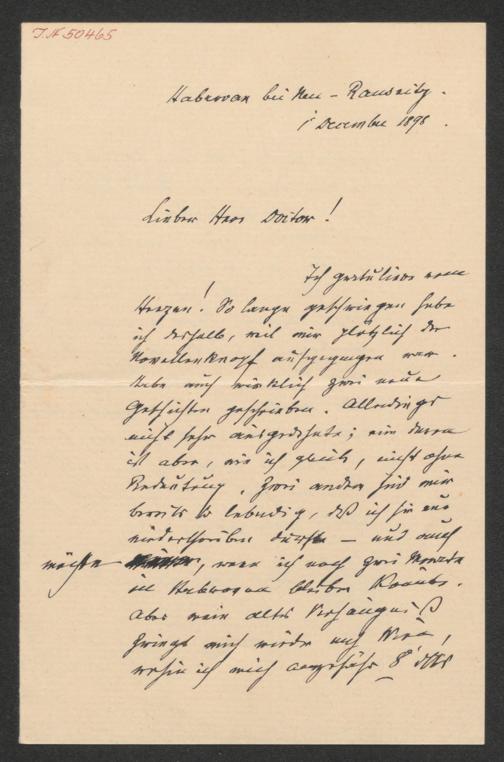 I.N 50465
Habrovan bei Neu-Rausnitz.
1 December 1898.
Lieber Herr Doctor!
Ich gratuliere vom
Herzen! So lange geschwiegen habe
ich deshalb, weil mir plötzlich der
Novellenknopf aufgegangen war.
Habe auch wirklich zwei neue
Geschichten geschrieben. Allerdings
nicht sehr ausgedehnte; eine davon
ist aber, wie ich glaube, nicht ohne
Bedeutung. Zwei andere sind mir
bereits so lebendig, daß ich sie nur
niederschreiben dürfte — und auch
möchte, wenn ich noch zwei Monate
in Habrovan bleiben könnte.
Aber mein altes Verhängniß
zwingt mich wieder nach Wien,
wohin ich mich ungefähr 8 dss